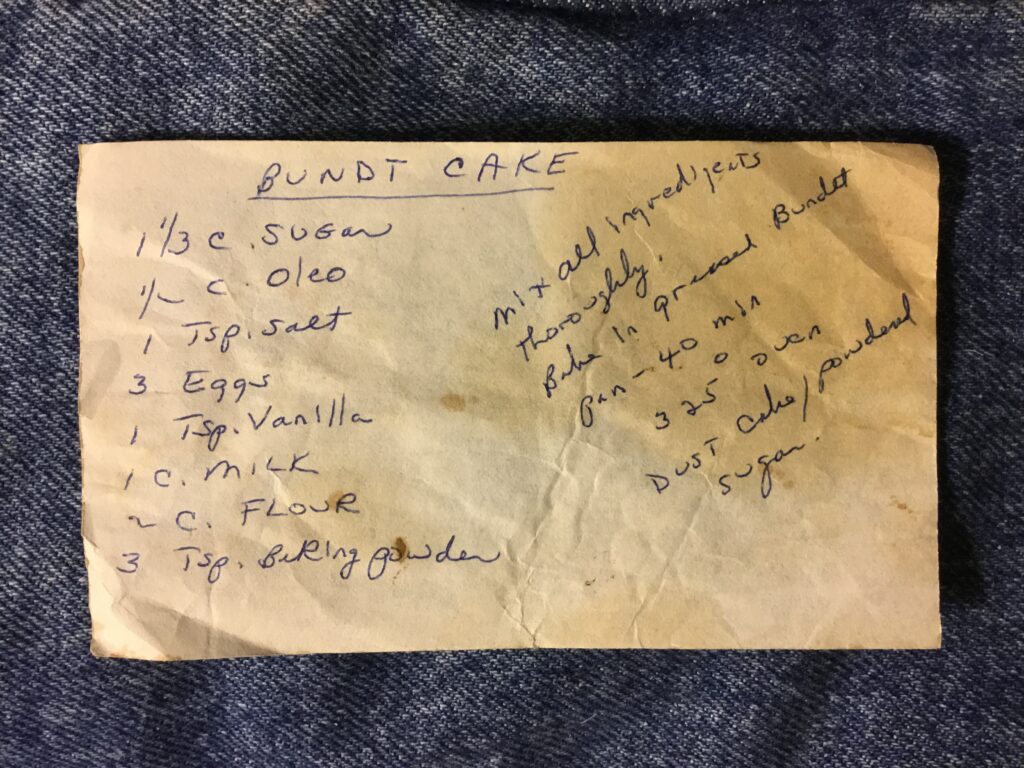 BUNDT CAKE
1 1/3 C. SUGAR
1/2 C. Oleo
1 Tsp. Salt
3 Eggs
1 Tsp. Vanilla
1 C. MILK
2 C. FLOUR
3 Tsp. Baking powder
Mix all ingredients
thoroughly.
Bake in greased Bundt
pan - 40 min
325° oven
DUST Cake/powdered
sugar.